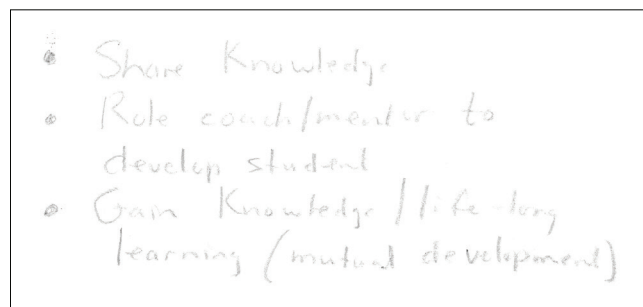 • Share Knowledge
• Role coach/mentor to
develop student
• Gain Knowledge/life-long
learning (mutual development)